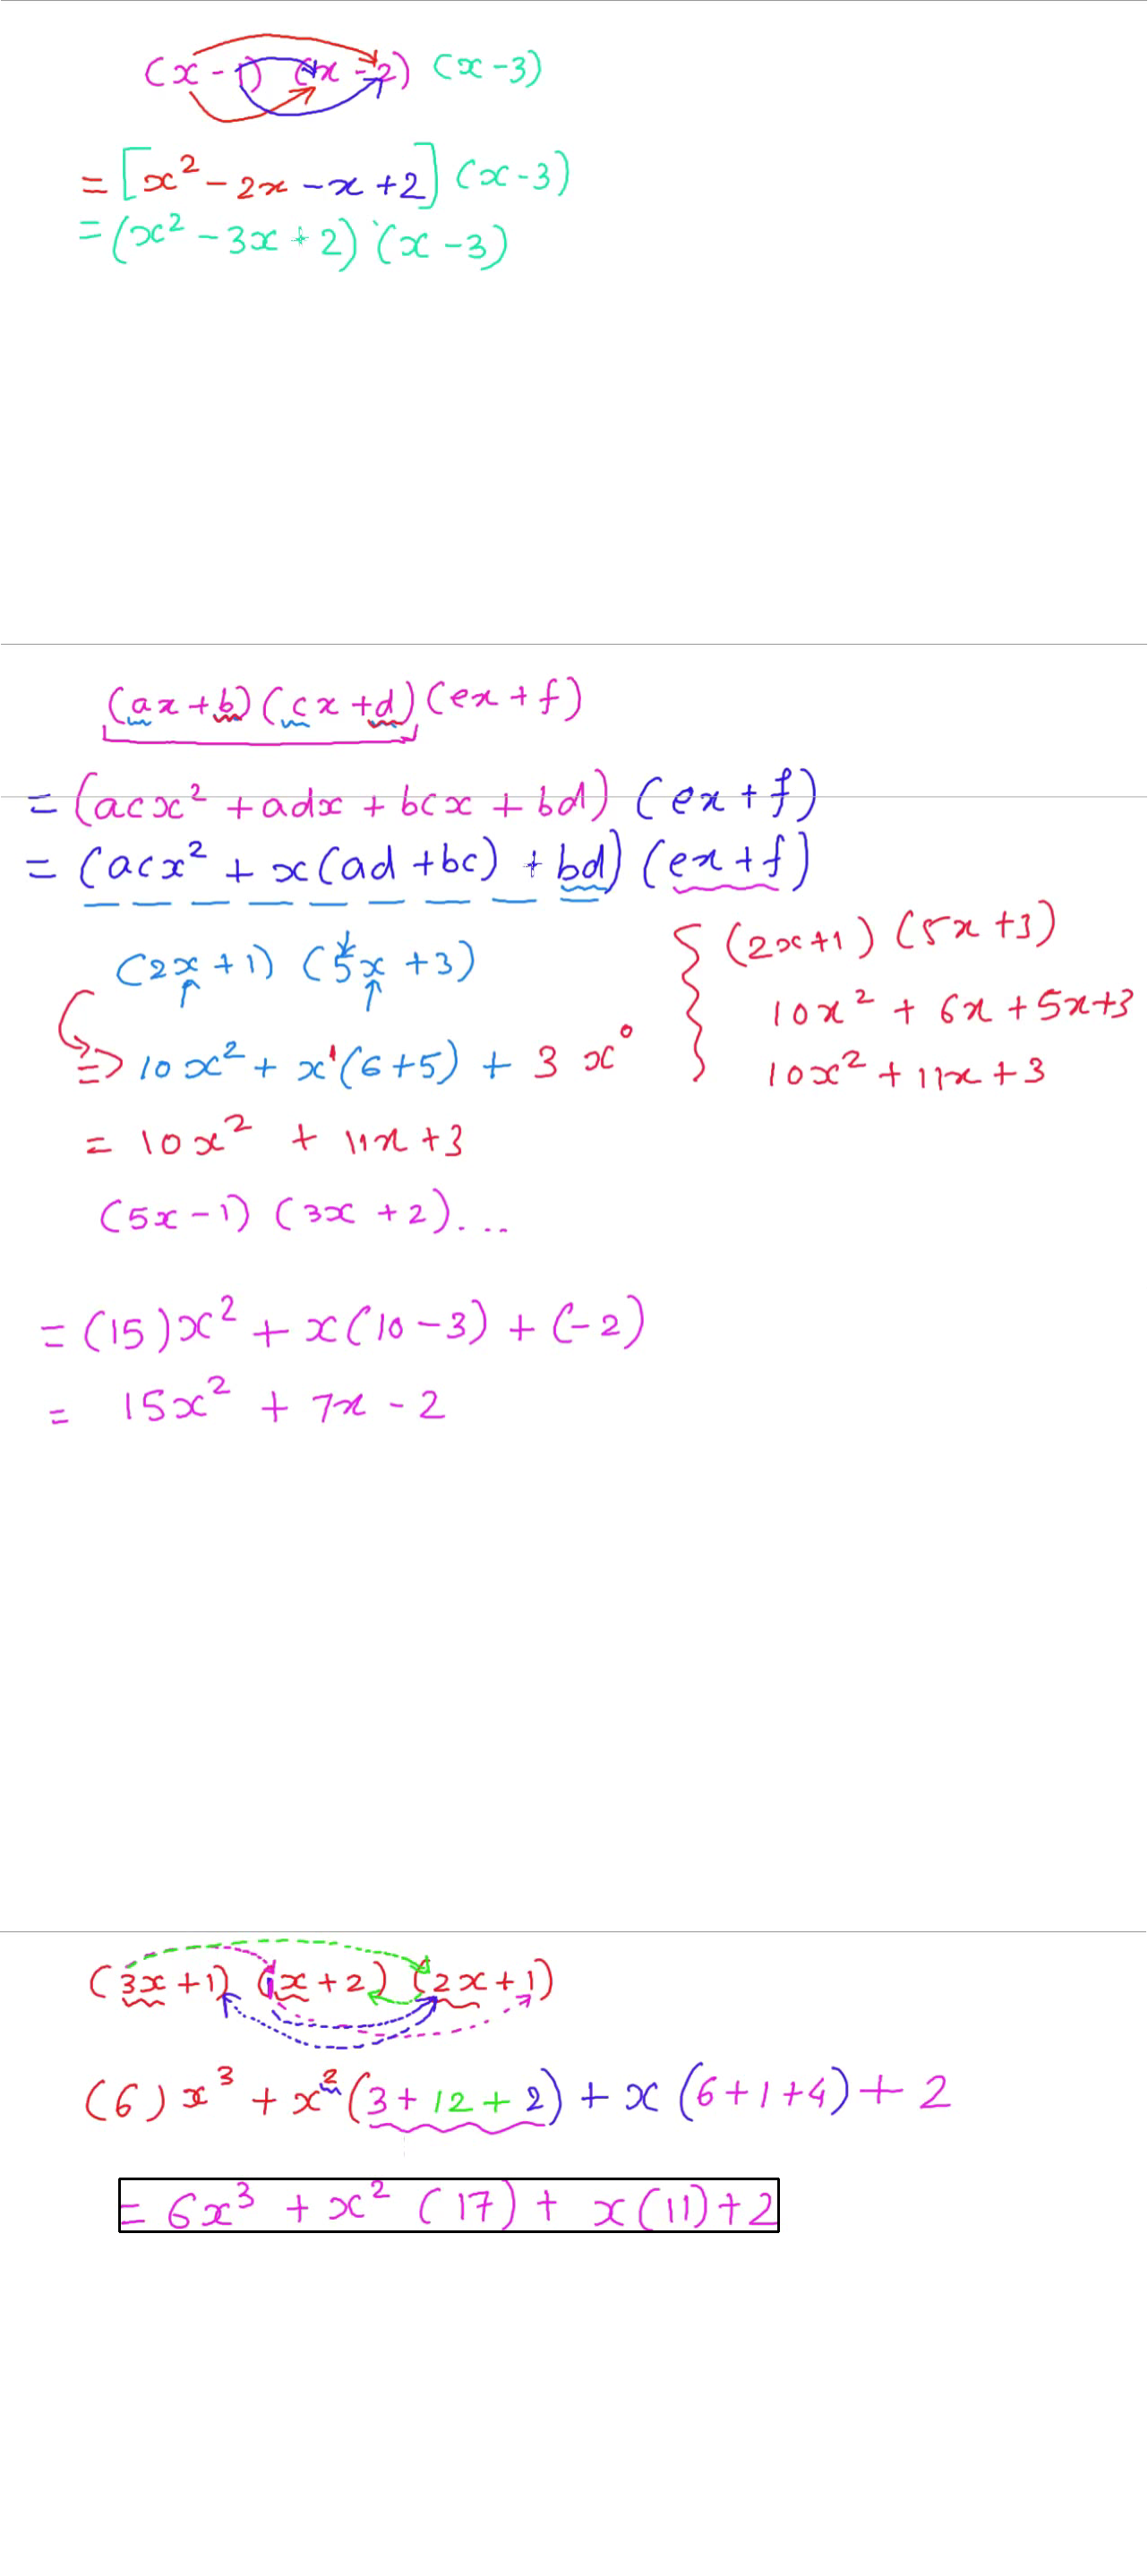 (x - 1) (x - 2) (x - 3)
= [x² - 2x - x + 2] (x - 3)
= (x² - 3x + 2) (x - 3)
(ax + b) (cx + d) (ex + f)
= (acx² + adx + bcx + bd) (ex + f)
= (acx² + x(ad + bc) + bd) (ex + f)
(2x + 1) (5x + 3)
=> 10x² + x¹(6 + 5) + 3x⁰
= 10x² + 11x + 3
{ (2x + 1) (5x + 3)
10x² + 6x + 5x + 3
10x² + 11x + 3
(5x - 1) (3x + 2) ...
= (15)x² + x(10 - 3) + (-2)
= 15x² + 7x - 2
(3x + 1) (1x + 2) (2x + 1)
(6)x³ + x²(3 + 12 + 2) + x(6 + 1 + 4) + 2
= 6x³ + x² (17) + x(11) + 2